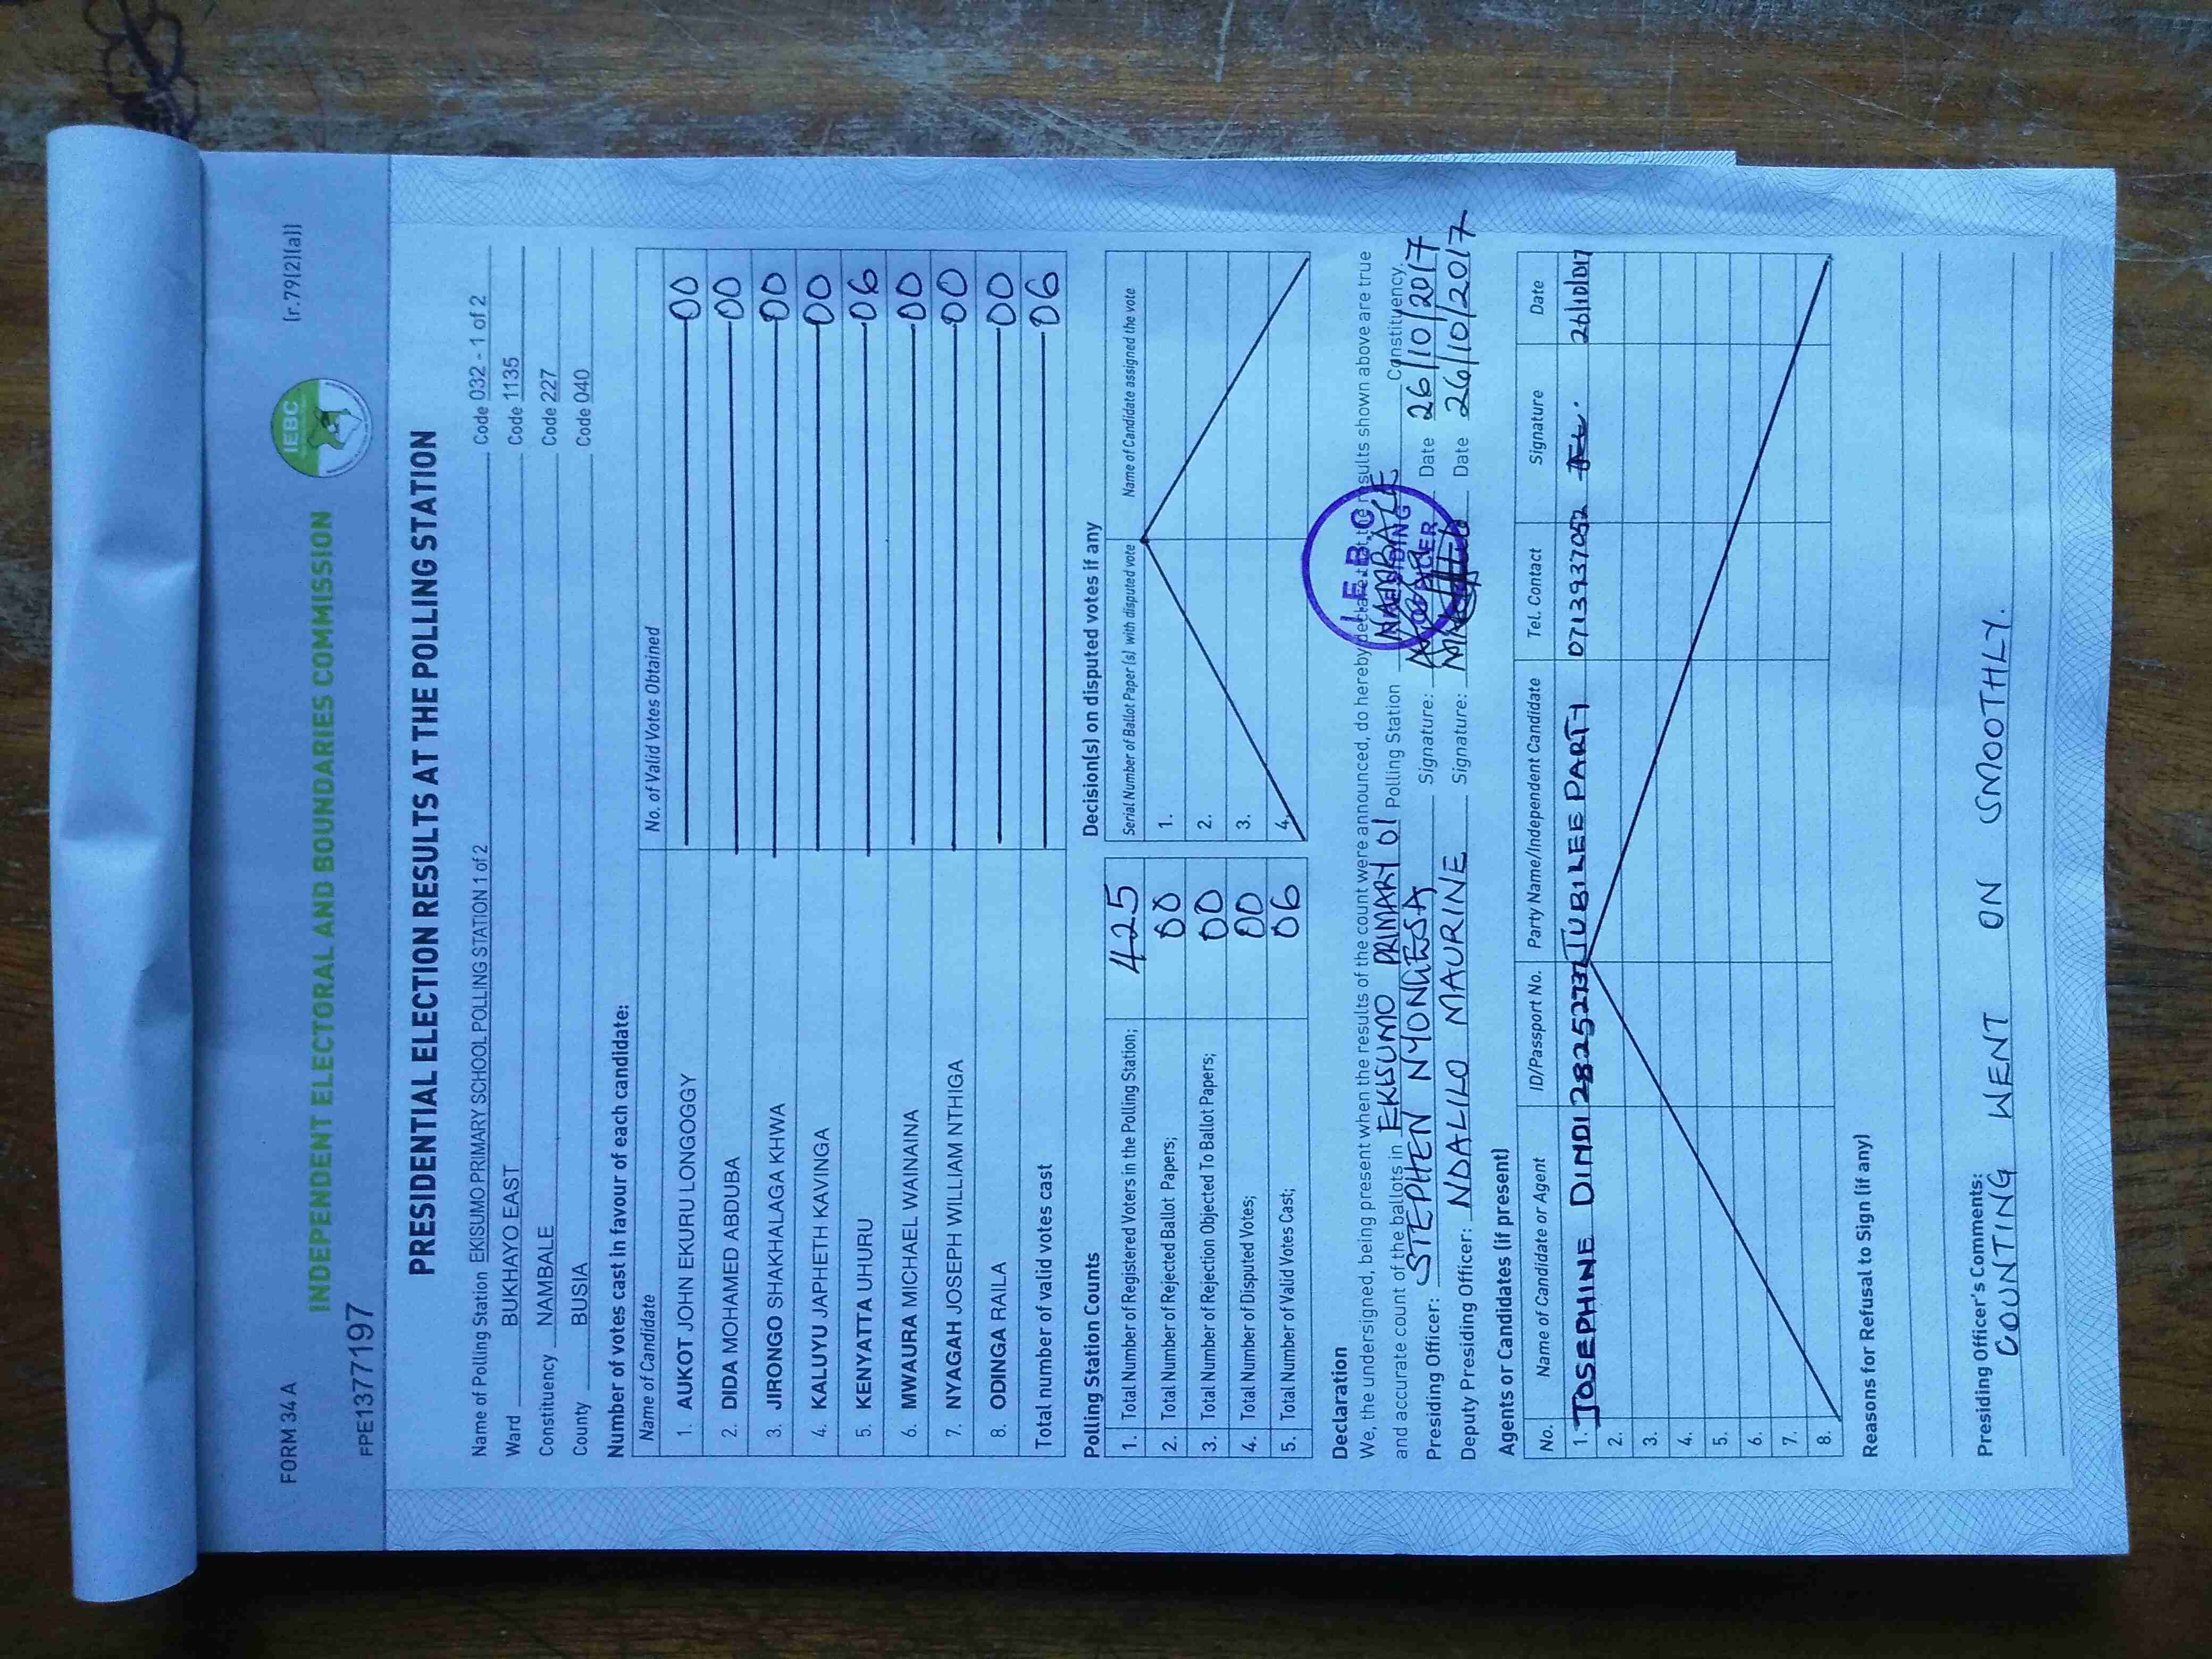 FORM 34 A
INDEPENDENT ELECTORAL AND BOUNDARIES COMMISSION
IEBC
(r.79(2)(a))
FPE1377197
PRESIDENTIAL ELECTION RESULTS AT THE POLLING STATION
Name of Polling Station EKISUMO PRIMARY SCHOOL POLLING STATION 1 of 2 Code 032 - 1 of 2
Ward BUKHAYO EAST Code 1135
Constituency NAMBALE Code 227
County BUSIA Code 040
Number of votes cast in favour of each candidate:
Name of Candidate No. of Valid Votes Obtained
1. AUKOT JOHN EKURU LONGOGGY 00
2. DIDA MOHAMED ABDUBA 00
3. JIRONGO SHAKHALAGA KHWA 00
4. KALUYU JAPHETH KAVINGA 00
5. KENYATTA UHURU 06
6. MWAURA MICHAEL WAINAINA 00
7. NYAGAH JOSEPH WILLIAM NTHIGA 00
8. ODINGA RAILA 00
Total number of valid votes cast 06
Polling Station Counts
1. Total Number of Registered Voters in the Polling Station; 425
2. Total Number of Rejected Ballot Papers; 00
3. Total Number of Rejection Objected To Ballot Papers; 00
4. Total Number of Disputed Votes; 00
5. Total Number of Valid Votes Cast; 06
Decision(s) on disputed votes if any
Serial Number of Ballot Paper (s) with disputed vote Name of Candidate assigned the vote
1.
2.
3.
4.
Declaration
We, the undersigned, being present when the results of the count were announced, do hereby declare that the results shown above are true
and accurate count of the ballots in EKISUMO PRIMARY 01 Polling Station NAMBALE Constituency.
Presiding Officer: STEPHEN NYONGESA Signature: Date 26/10/2017
Deputy Presiding Officer: NDALILO MAURINE Signature: Date 26/10/2017
I.E.B.C
PRESIDING
OFFICER
Agents or Candidates (if present)
No. Name of Candidate or Agent ID/Passport No. Party Name/Independent Candidate Tel. Contact Signature Date
1. JOSEPHINE DINDI JUBILEE PARTY 0713937052
2.
3.
4.
5.
6.
7.
8.
Reasons for Refusal to Sign (if any)
Presiding Officer's Comments:
COUNTING WENT ON SMOOTHLY.